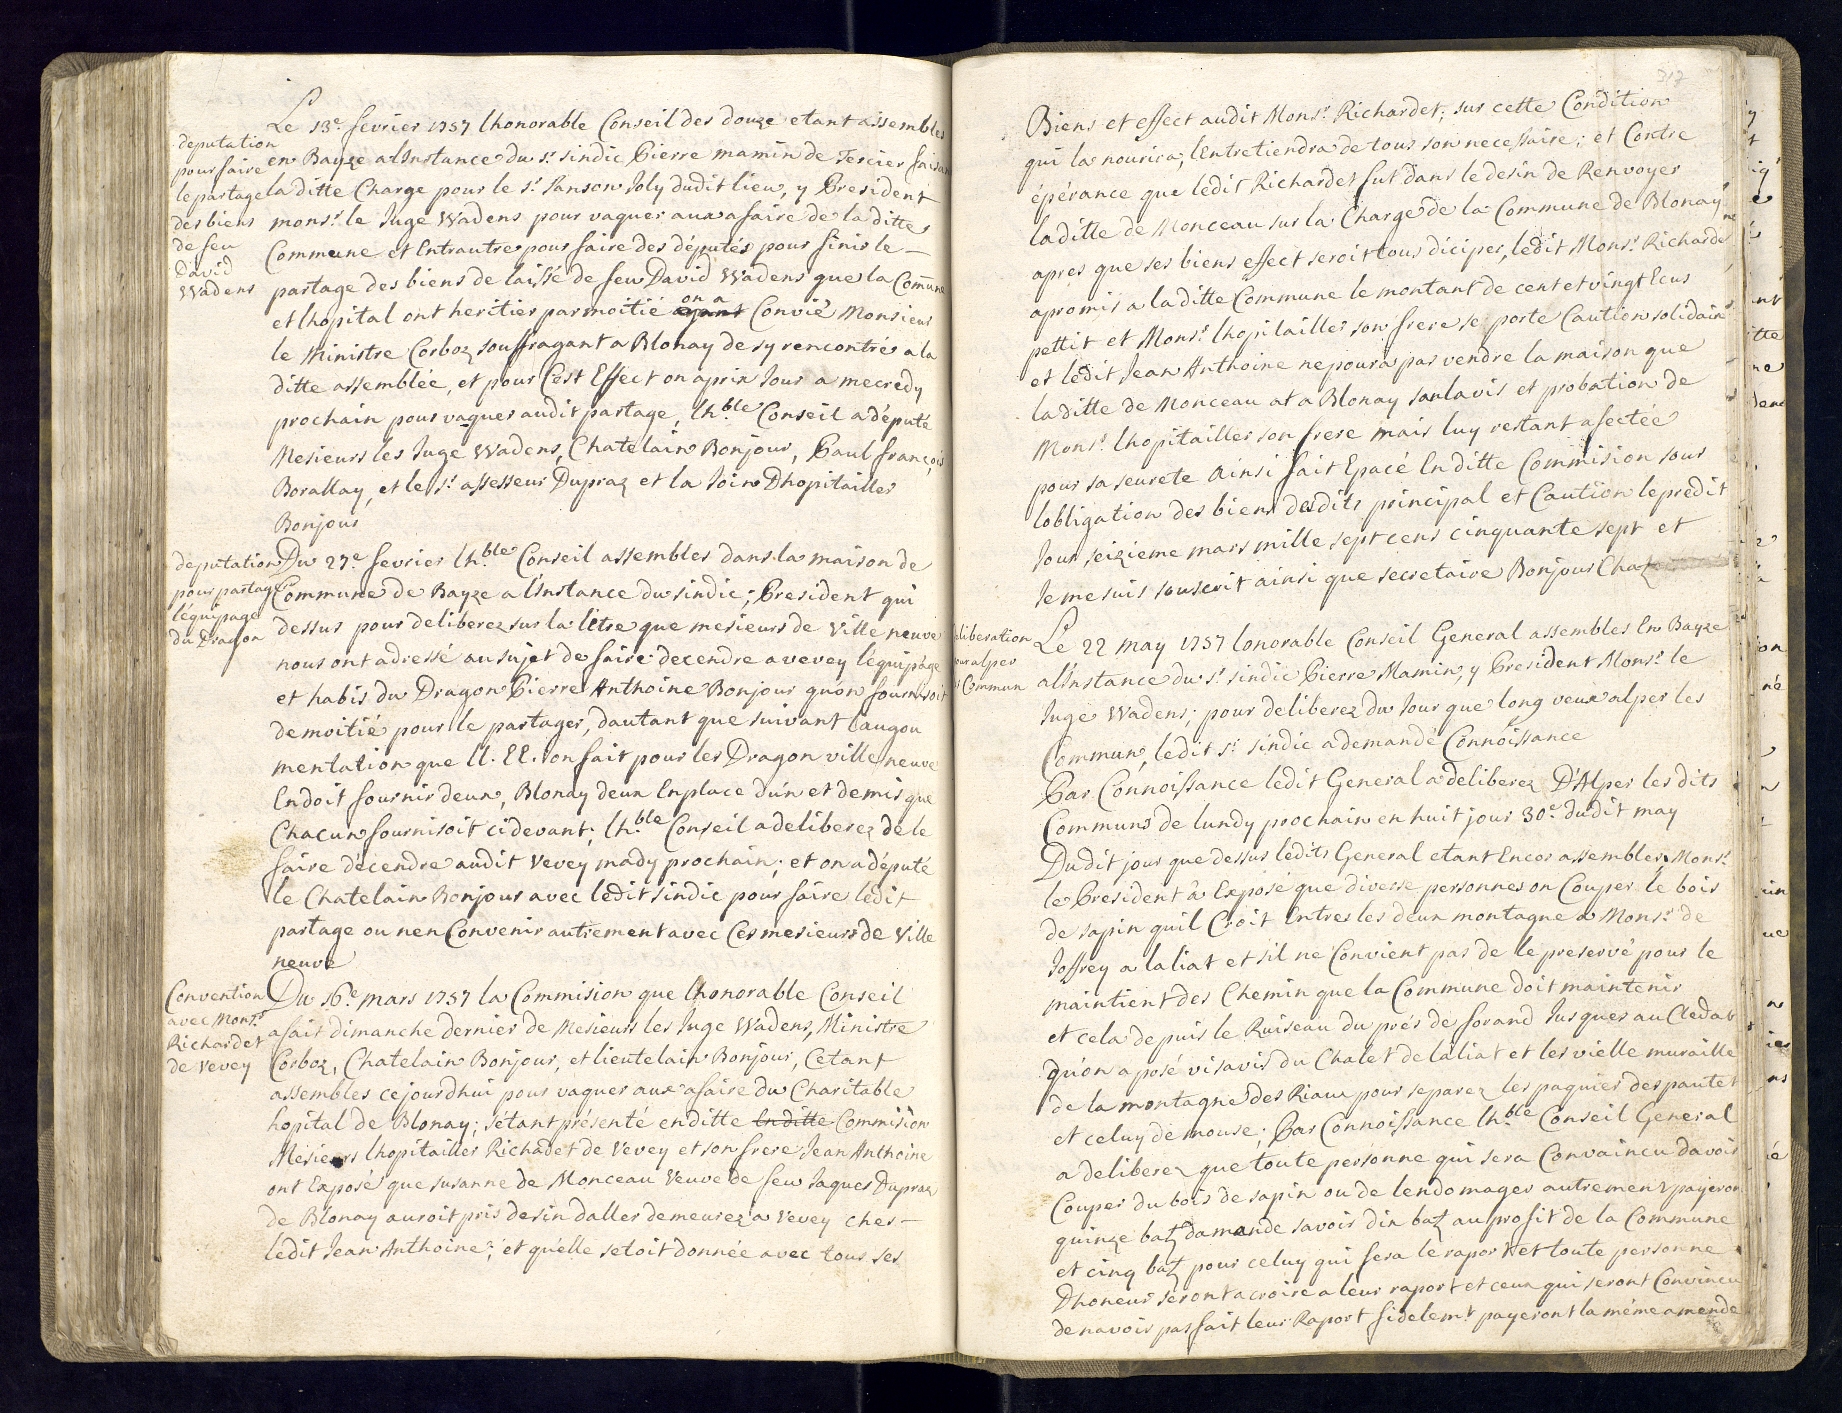 Le 13.e fevrier 1757 lhonorable Conseil des douze etant assembles
deputation
pour faire
le partage
des biens
de feu
David
Wadens
en Bayze alInstance du s.r sindic Pierre mamin de Tercier faisant
la ditte Charge pour le s.r Sanson Joly dudit lieu, y President
mons.r le Juge Wadens pour vaquer aux afaire de la ditte
Commune et Entrautre pour faire des députés pour finir le
partage des biens de laissé de feu David Wadens que la Comune
et lhopital ont heritier par moitié on a ayant Convié Monsieur
le Ministre Corboz souffragant a Blonay de sy rencontrés a la
ditte assemblée, et pour Cest Effect on aprix Jour a mecredy
prochain pour vaquer audit partage, lh.ble Conseil a député
Mesieurs les Juge Wadens, Chatelain Bonjour, Paul françois
Borallay, et le s.r assesseur Dupraz et la Join Dhopitailler
Bonjour
deputation
pour partage
léquipage
du Dragon
Du 27.e fevrier lh.ble Conseil assembles dans la maison de
Commune de Bayze a lInstance du sindic; President qui
dessus pour deliberez sur la lètre que mesieurs de Ville neuve
nous ont adressé au sujet de faire decendre a vevey léquipage
et habis du Dragon Pierre Anthoine Bonjour quon fournisoit
de moitié pour le partager, dautant que suivant Laugou
mentation que LL. EE. on fait pour les Dragon ville neuve
En doit fournir deux, Blonay deux En place dún et demis que
Chacun fournisoit ci devant; lh.ble Conseil a deliberez de le
faire décendre audit Vevey mady prochain; et on a député
le Chatelain Bonjour avec ledit sindic pour faire ledit
partage ou nen Convenir autrement avec Ces mesieurs de Ville
neuve
Convention
avec Mons.r
Richardet
de Vevey
Du 16.e mars 1757 la Commision que lhonorable Conseil
a fait dimanche dernier de Mesieurs les Juge Wadens, Ministre
Corboz, Chatelain Bonjour, et lieutelain Bonjour, Cetant
assembles cejourdhui pour vaquer aux afaire du Charitable
hopital de Blonay; sétant présenté en ditte En ditte Commision
Mesieurs lhopitailler Richadet de Vevey et son frere Jean Anthoine
ont Exposé que susanne de Monceau Veuve de feu Jaques Dupraz
de Blonay auroit pris desin daller demeurez a Vevey cher
ledit Jean Anthoine; et quélle setoit donnée avec tous ses
317
Biens et effect audit Mons.r Richardet; sur cette Condition
qui la nourira, lEntretiendra de tous son necessaire; et Contre
épérance que ledit Richardet fut dans le desin de Renvoyer
la ditte de Monceau sur la Charge de la Commune de Blonay
apres que ses biens effect seroit tous diciper, ledit Mons.r Richardet
a promis a la ditte Commune le montant de cent et vingt Ecus
pettit et Mons.r lhopitailler son frere se porte Caution solidaire
et ledit Jean Anthoine ne poura pas vendre la maison que
la ditte de Monceau at a Blonay sans lavis et probation de
Mons.r lhopitailler son frere mais luy restant afectée
pour sa seurete Ainsi fait Epacé En ditte Commision sous
lobligation des biens desdits principal et Caution le predit
Jour seizieme mars mille sept cens cinquante sept et
Je me suis souscrit ainsi que secretaire Bonjour Chat
deliberation
pour alper
les Commun
Le 22 may 1757 lonorable Conseil General assembles En Bayze
alInstance du s.r sindic Pierre Mamin, y President Mons.r le
Juge Wadens; pour deliberez du Jour que long veux alper les
Commun, ledit s.r sindic a demandé Connoissance
Par Connoissance ledit General a deliberez D'Alper lesdits
Communs de lundy prochain en huit jour 30.e dudit may
Dudit jour que dessus ledits General etant Encor assembler Mons.r
le President à Exposé que diverse personnes on Couper le bois
de sapin quil Croit Entres les deux montagne a Mons.r de
Joffrey a laliat et sil ne Convient pas de le preservé pour le
maintient des Chemin que la Commune doit maintenir
et cela depuis le Ruiseau du prés de forand Jusques au Cledat
qu'on a posé vis avis du Chalet de laliat et les vielle muraille
de la montagne des Riaux pour separez les paquier des pautet
et celuy de mouse; Par Connoissance lh.ble Conseil General
a deliberez que toute personne qui sera Convaincu davoir
Couper du bois de sapin ou de lendomager autrement payeron
quinze batz damande savoir dix batz au profit de la Commune
et cinq batz pour celuy qui fera le raport et toute personne
Dhoneur seront a croire a leur raport et ceux qui seront Convincu
de navoir pas fait leur Raport fidelem.t payeront la méme amende